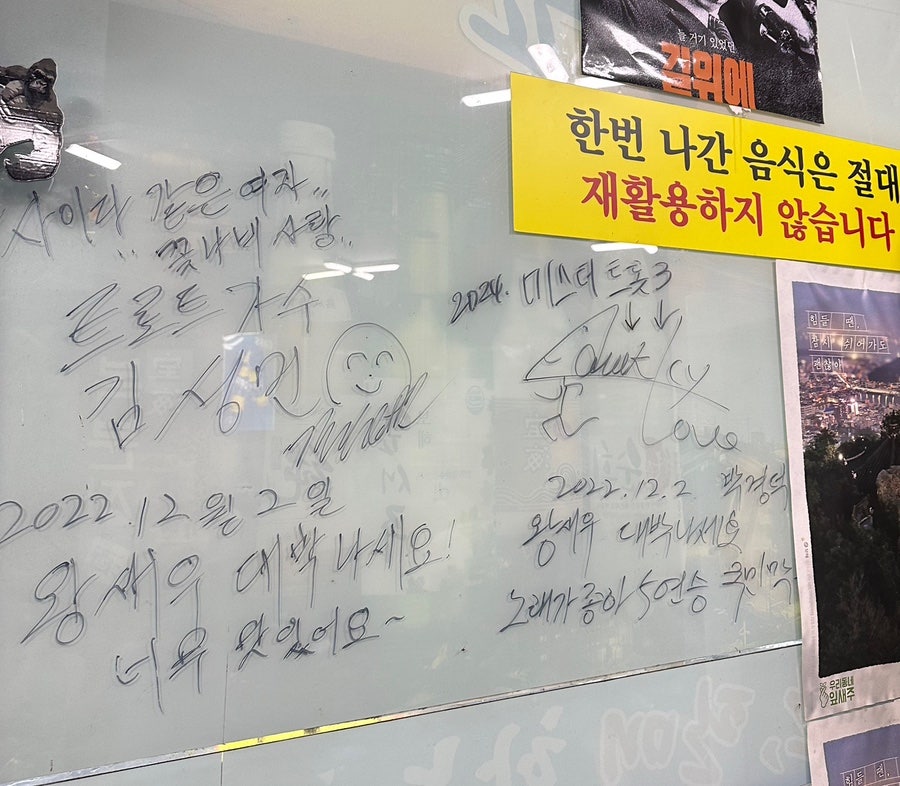 들 거기 있었던
길위에
한번 나간 음식은 절대
재활용하지 않습니다
사이다 같은 여자..
.. 꽃나비 사랑..
트로트 가수
김성민
2022.12월 2일
왕새우 대박나세요!
너무 맛있어요~
2024. 미스터트롯3
Love
2022.12.2 박경덕
왕새우 대박나세요
노래가 좋아 5연승
힘들 땐,
잠시 쉬어가도
괜찮아
우리동네
잎새주
힘들 땐,